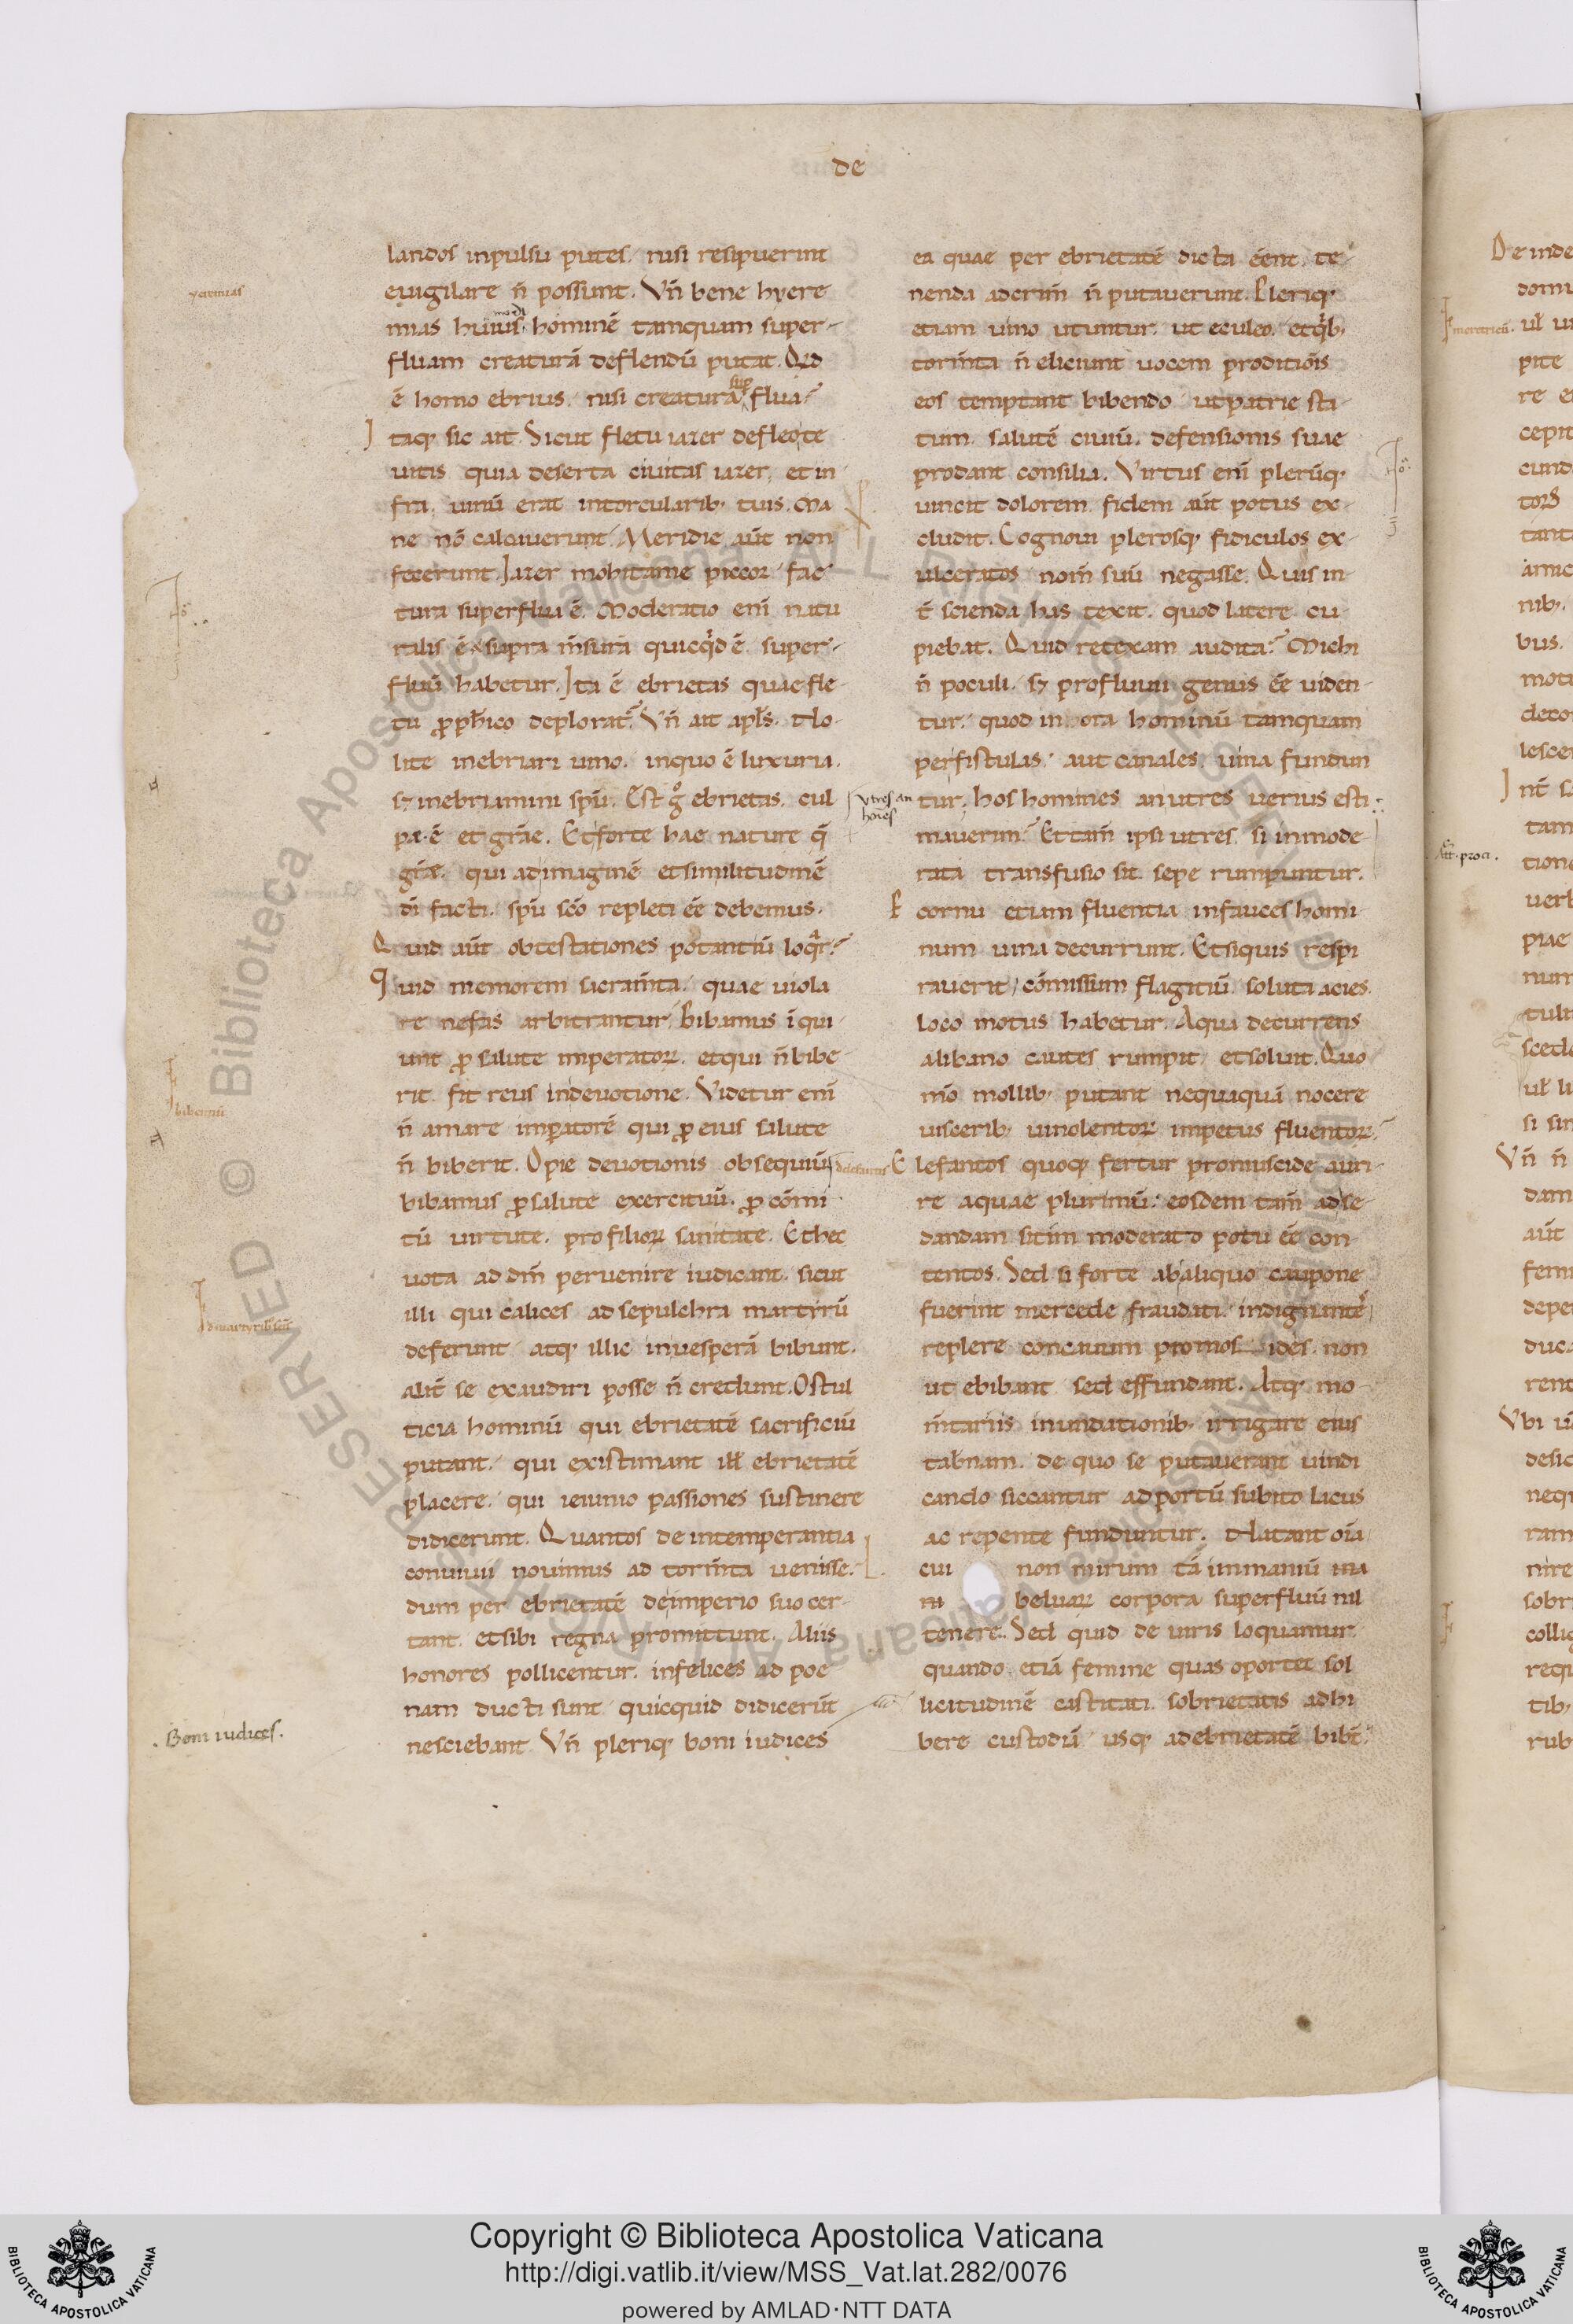 de
landos inpulsu putes. nisi resipuerint
euigilare n̄ possunt. Vn̄ bene hyere
mias huius modi hominē tamquam super-
fluam creaturā deflendū putat. Qid
ē homo ebrius. nisi creatura supflua?
Itaq; sic ait. Sicut fletu iazer deflecte
uitis quia deserta ciuitas iazer, et in
fra. uinū erat intorcularib; tuis. Ma
ne nō calcauerunt. Meridie aūt non
fecerunt. Iazer
tura superflua ē. Moderatio enī natu
ralis ē & supra m̄surā quicq̇d ē super-
fluū habetur. Ita ē ebrietas quae fle-
tu ꝓph̄ico deplorat̄? Vn̄ ait apl̄s. No-
lite inebriari uino. inquo ē luxuria.
sꝫ inebriamini spū. Est gͦ ebrietas. cul
pæ ē et grāe. Et forte hae nature q̄
grāe. qui adimaginē et similitudinē
dī facti. spū scō repleti eē debemus.
Quid aūt obtestationes potantiū loq̄r?
Quid memorem sacram̄ta. quae uiola
re nefas arbitrantur. Bibamus īqui
unt ꝓ salute imperatoꝝ. etqui n̄ bibe
rit. fit reus indeuotione. Videtur enī
n̄ amare imperatorē qui ꝓ eius salute
n̄ biberit. Opie deuotionis obsequiū
bibamus ꝓ salute exercituū. ꝓ cōmi
tū uirtute. pro filioꝝ sanitate. Et hec
uota ad dm̄ peruenire iudicant. sicut
illi qui calices ad sepulchra martyrū
deferunt atq; illic inuesperā bibunt.
alit̄ se exaudiri posse n̄ credunt. O stul
ticia hominū qui ebrietatē sacrificiū
putant. qui existimant ill̄ ebrietatē
placere. qui ieiunio passiones sustinere
didicerunt. Quantos de intemperantia
conuiuii nouimus ad torm̄ta uenisse.
dum per ebrietatē deimperio suo cer
tant. et sibi regna promittunt. Aliis
honores pollicentur. infelices ad poe
nam ducti sunt quicquid didicerūt
nesciebant. Vn̄ pleriq; boni iudices
ea quae per ebrietatē dicta eēnt. te-
nenda adcrim̄ n̄ putauerunt. Pleriq;
etiam uino utuntur. ut eculeo. etq̇b;
torm̄ta n̄ eliciunt uocem proditiōis
eos temptant bibendo ut patrie sta-
tum. salutē ciuiū. defensionis suae
prodant consilia. Virtus enī plerūq;
uincit dolorem. fidem aūt potus ex-
cludit. Cognoui plerosq; fidiculos ex-
ulceratos nom̄ suū negasse. Quis in-
t̄ scienda has texit. quod latere cu-
piebat. Quid retexam audita? Michi
n̄ poculi. sꝫ profluuii genus eē uiden-
tur. quod in ora hominū tamquam
per fistulas. aut canales. uina fundun
tur. hos homines an utres uerius esti
mauerim? Et tam̄ ipsi utres. si inmode-
rata transfusio sit. sepe rumpuntur.
cornu etiam fluentia infauces homi-
num uina decurrunt. Et siquis respi
rauerit cōmissum flagitiū. soluta acies.
loco motus habetur. Aqua decurrens
alibano cautes rumpit et soluit. Quo
mō mollib; putant nequaquā nocere
uisceribꝫ uinolentoꝝ impetus fluentoꝝ?
Elefantos quoq; fertur promuscide auri-
re aquae plurimū: eosdem tam̄ adse-
dandam sitim moderato potu eē con-
tentos. Sed si forte abaliquo caupone
fuerint mercede fraudati. indignant̄
replere concauum promos idēs. non
ut ebibant sed effundant. Atq; mo-
m̄tariis inundationib; irrigare eius
tab̄nam. de quo se putauerant uindi
cando siccantur adportū subito lacus
ac repente funduntur. Natant oīa.
cui non mirum tā immaniū
beluaꝝ corpora superfluū nil
tenere. Sed quid de uiris loquamur.
quando etiā femine quas oportet sol
licitudinē castitati. sobrietatis adhi
bere custodiā usq; adebrietatē bibt̄.
yeremias
bibamus
Boni iudices.
Vtres an
hoīes
de elefantis
Copyright © Biblioteca Apostolica Vaticana
http://digi.vatlib.it/view/MSS_Vat.lat.282/0076
powered by AMLAD·NTT DATA
BIBLIOTECA APOSTOLICA VATICANA
BIBLIOTECA APOSTOLICA VATICANA